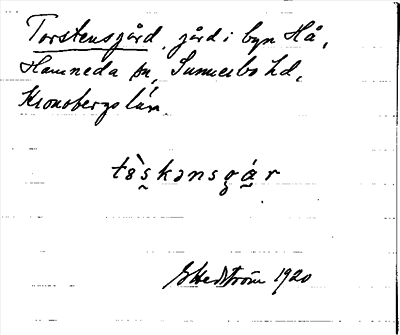 Torstensgård, gård i byn Hå,
Hamneda sn, Sunnerbo hd,
Kronobergs län.
tɵ̀s̱kənsgá̱r
G Hedström 1920